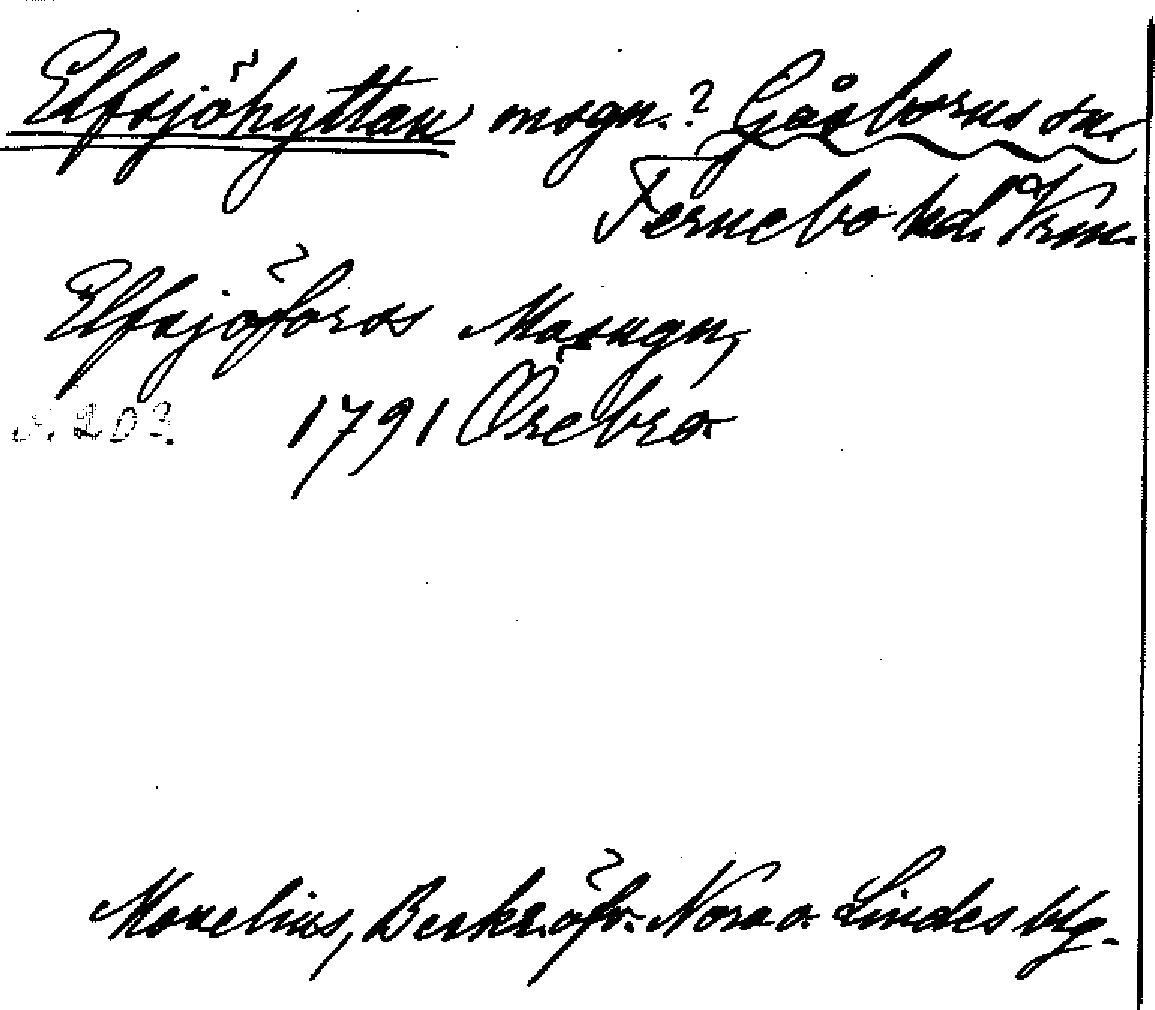 Elfsjöhyttan msgn.? Gåsborns sn.
Fernebo hd. Vrm.
Elfsjöfors Masugn,
s. 203. 1791 Örebro
Morelius, Beskr. öfv. Nora o. Lindes blg.